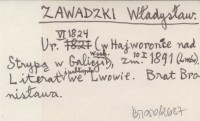 ZAWADZKI Władysław.
VI 1824
Ur. 1821 (w Hajworonte nad
Strypą w Galicji), zm. 10 X 1891 (Lwów)
Literat we Lwowie. Brat Bro-
nisława.